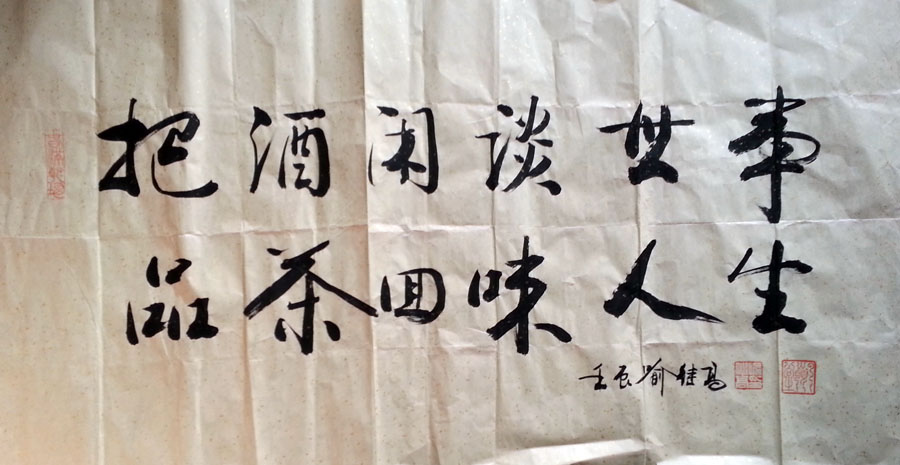 把酒闲谈世事
品茶回味人生
壬辰喻继高